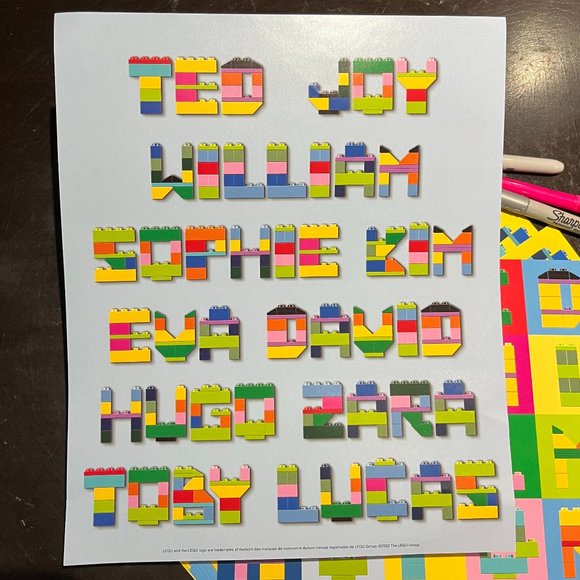 TED JOY
WILLIAM
SOPHIE KIM
EVA DAVID
HUGO ZARA
TOBY LUCAS
LEGO and the LEGO logo are trademarks of the/sont des marques de commerce de/son marcas registradas de LEGO Group. ©2022 The LEGO Group.
Sharpie